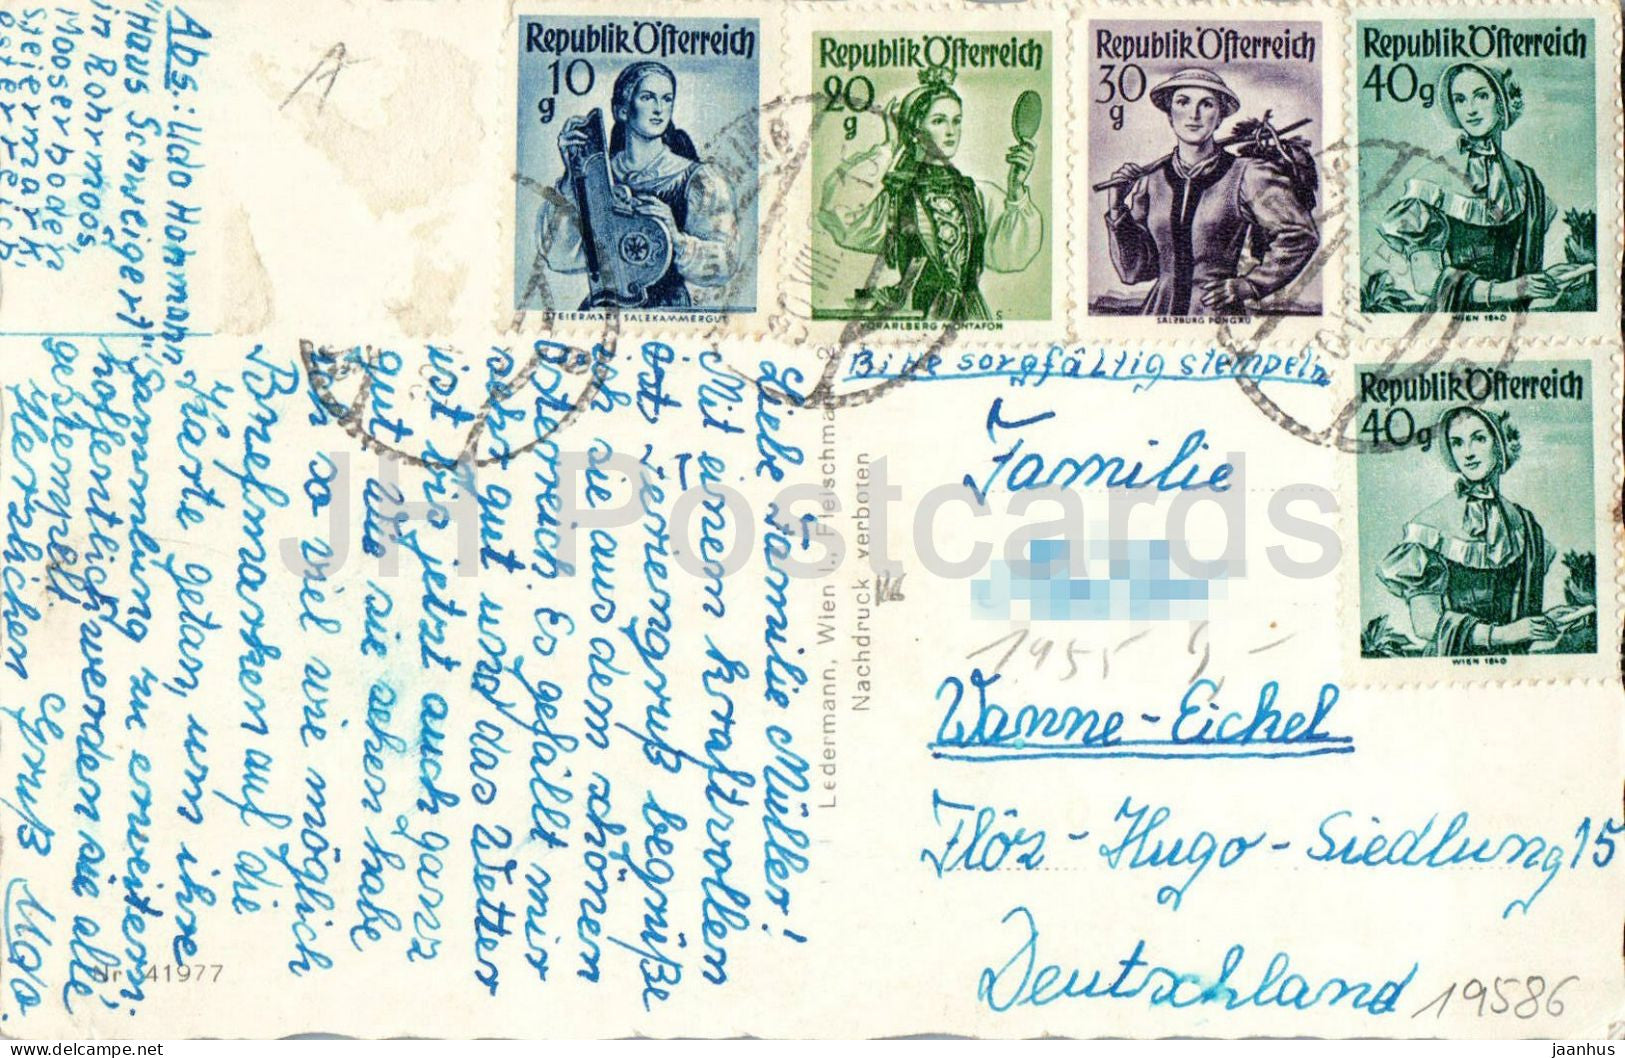 Abs.: Udo Hohmann
"Haus Schweiger"
in Rohrmoos
Mooserboden
Steiermark,
Österreich
Republik Österreich
10
g
STEIERMARK SALZKAMMERGUT
Republik Österreich
20
g
VORARLBERG MONTAFON
Republik Österreich
30
g
SALZBURG PONGAU
Republik Österreich
40g
WIEN 1840
Republik Österreich
40g
WIEN 1840
Bitte sorgfältig stempeln
Liebe Familie Müller!
Mit einem kraftvollen
Feriengruß begrüße
ich sie aus dem schönen
Österreich. Es gefällt mir
sehr gut und das Wetter
ist bis jetzt auch ganz
gut. Wie sie sehen habe
ich so viel wie möglich
Briefmarken auf die
Karte getan, um ihre
Sammlung zu erweitern.
(hoffentlich werden sie alle
gestempelt.
Herzlichen Gruß Udo.
Nr. 41977
Ledermann, Wien I., Fleischmarkt 2
Nachdruck verboten
Familie
1955
Wanne-Eickel
Flöz-Hugo-Siedlung 15
Deutschland
19586
JH Postcards
delcampe.net
jaanhus